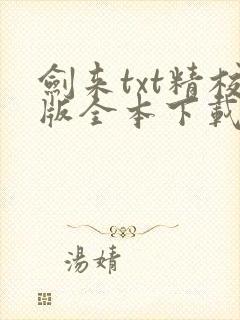 劍来txt精校
版全本下載
湯婧